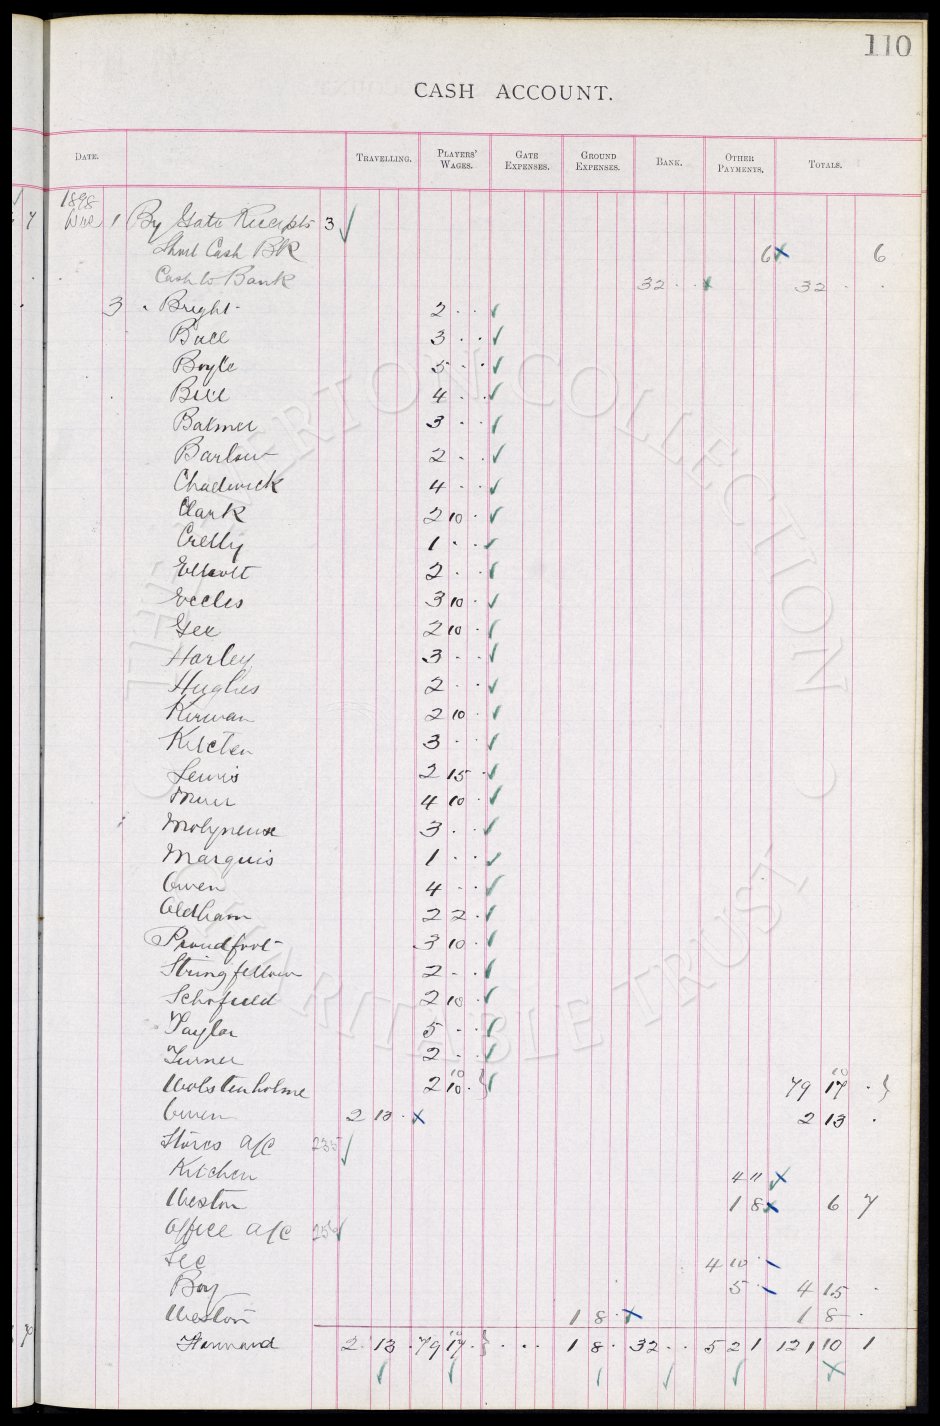 110
CASH ACCOUNT.
DATE. TRAVELLING. PLAYERS' WAGES. GATE EXPENSES. GROUND EXPENSES. BANK. OTHER PAYMENTS. TOTALS.
1898
1 By Gate Receipts 3
Short Cash BK 6 6
Cash to Bank 32 . . 32 . .
3 Bright 2 . .
Buce 3 . .
Boyle 5 . .
Bell 4 . .
Balmer 3 . .
Barlow 2 . .
Chadwick 4 . .
Clark 2 10 .
Crelly 1 . .
Elliott 2 . .
Eccles 3 10 .
Gee 2 10 .
Harley 3 . .
Hughes 2 . .
Kirwan 2 10 .
Kitchen 3 . .
Lewis 2 15 .
Muir 4 10 .
Molyneux 3 . .
Marquis 1 . .
Owen 4 . .
Oldham 2 2 .
Proudfoot 3 10 .
Stringfellow 2 . .
Schofield 2 10 .
Taylor 5 . .
Turner 2 . .
Wolstenholme 2 10 . 79 17 .
Owen 2 13 . 2 13 .
Stores a/c 235
Kitchen 4 11
Weston 1 8 6 7
Office a/c
Sec 4 10 .
Boy 5 . 4 15 .
Weston 1 8 . 1 8 .
Forward 2 13 . 79 17 . . . . 1 8 . 32 . . 5 2 1 121 10 1
THE EVERTON COLLECTION
CHARITABLE TRUST